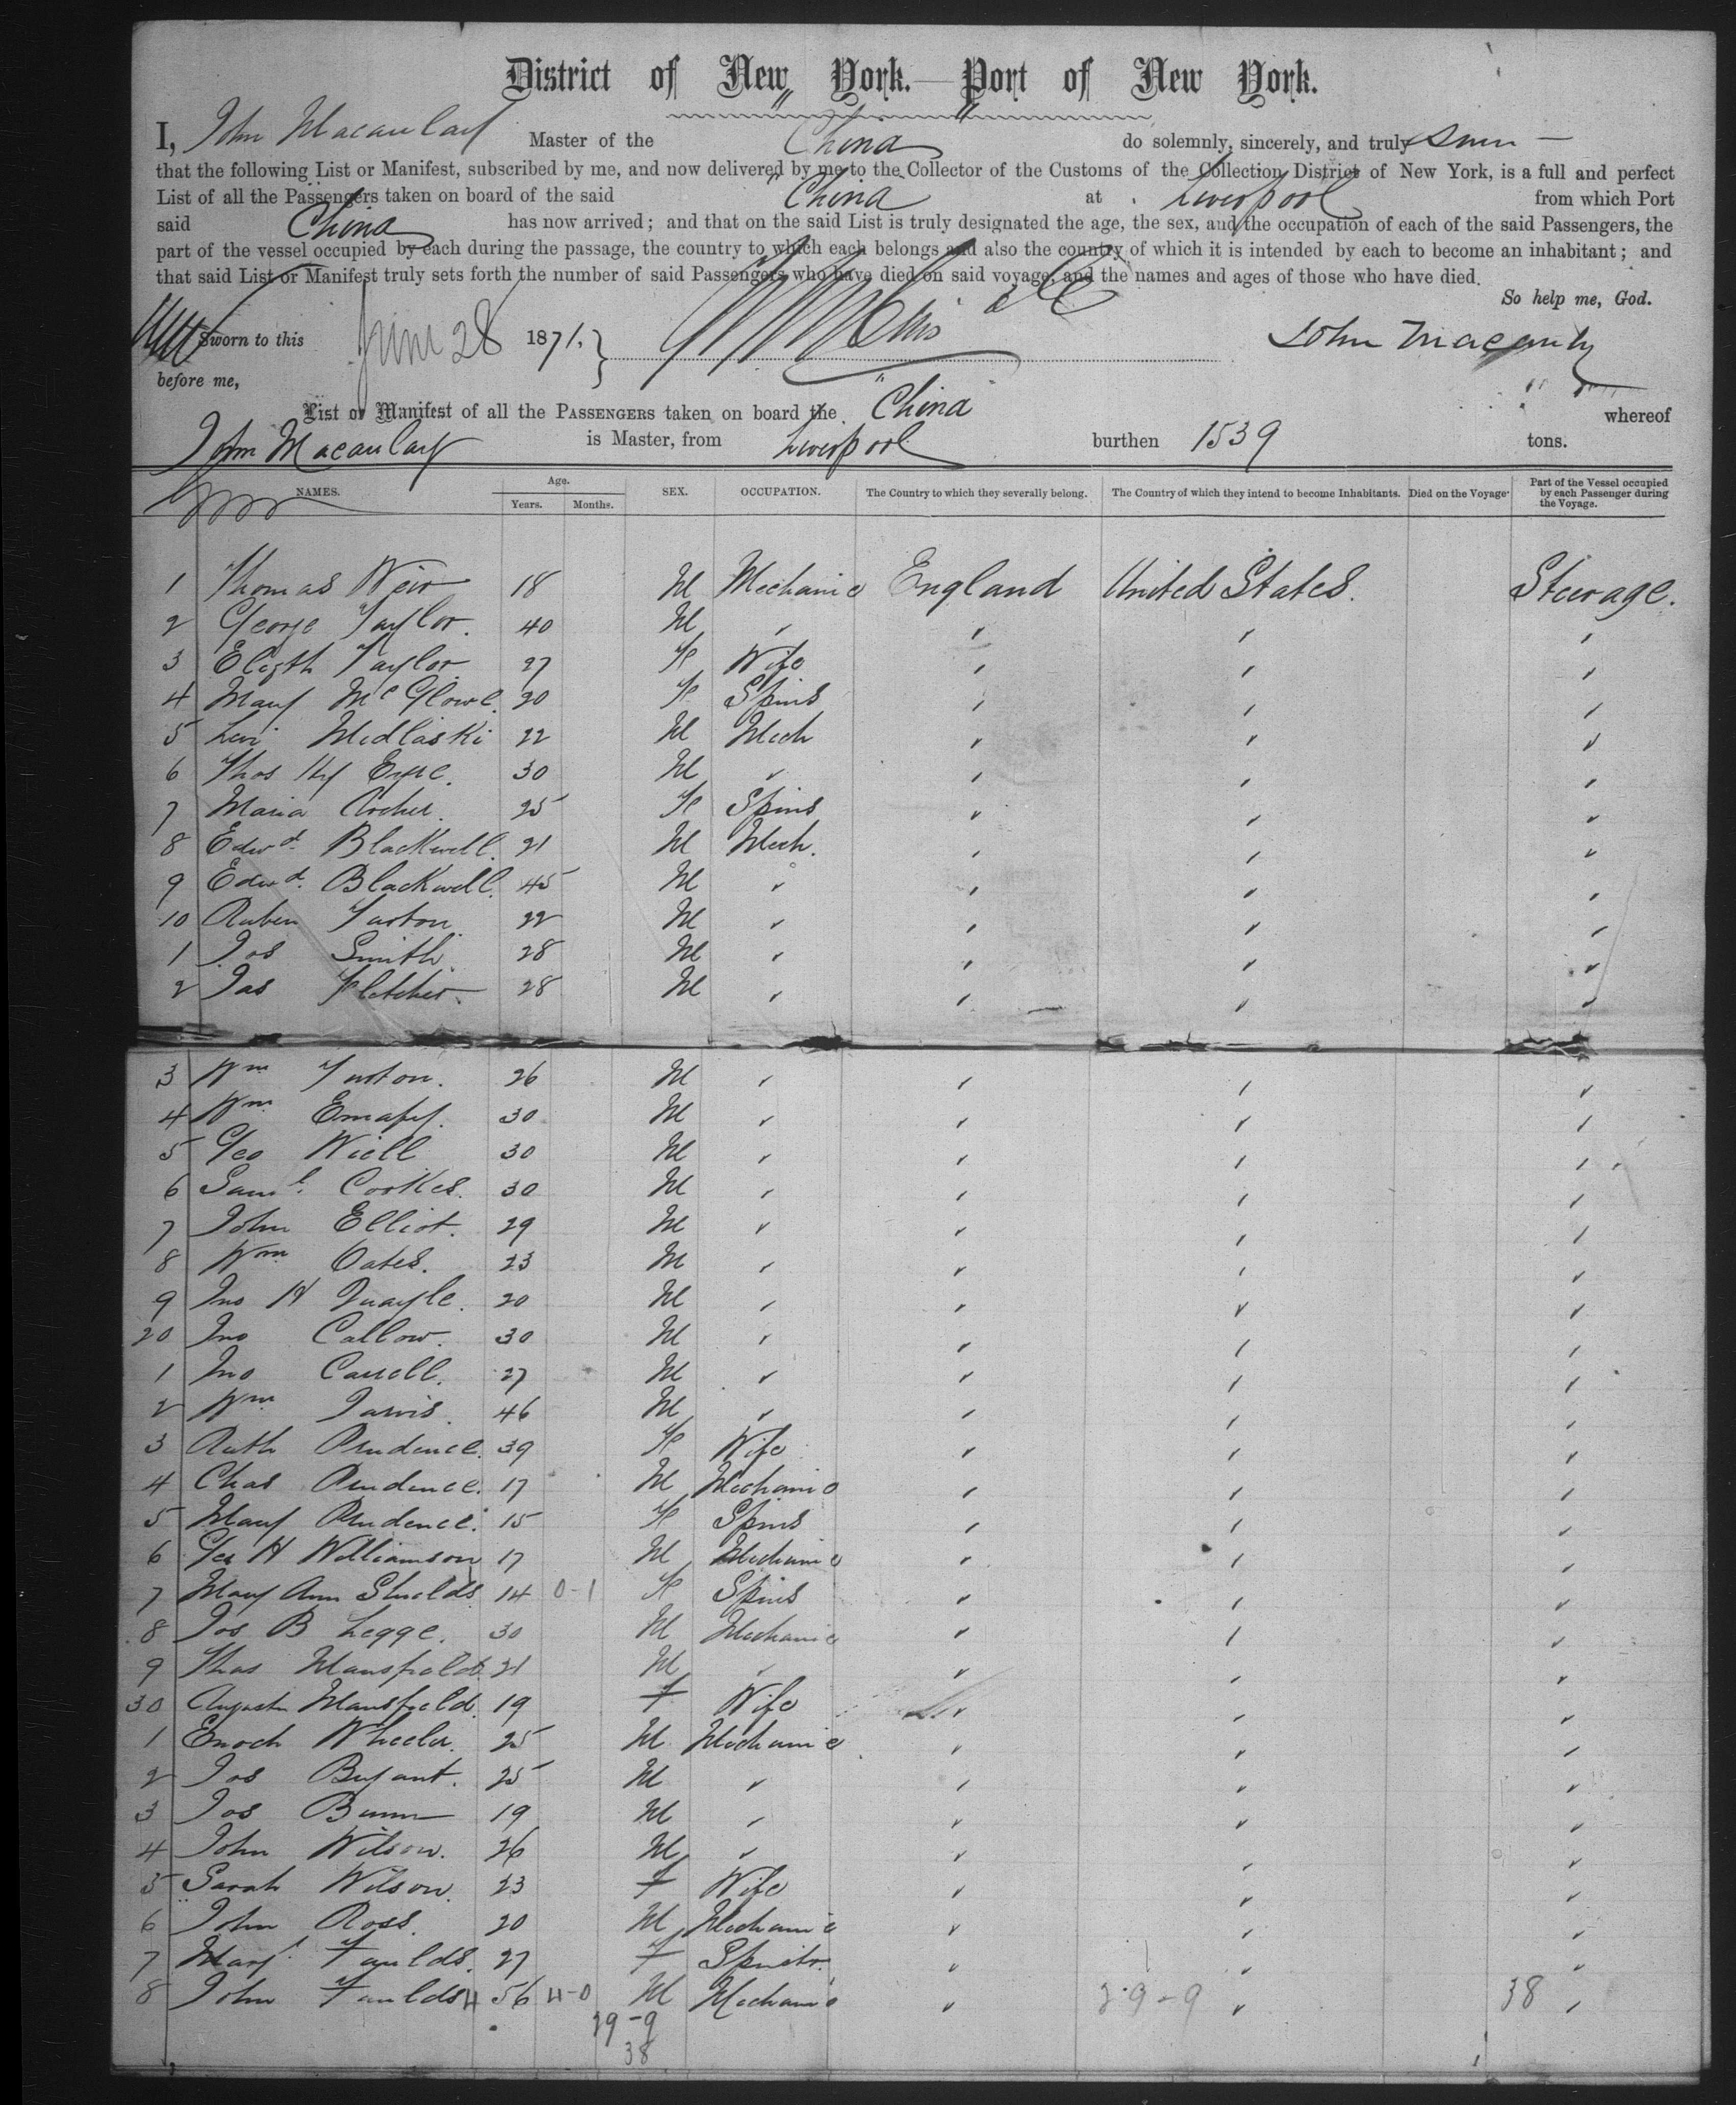 District of New York.—Port of New York.
I, John Macaulay Master of the "China" do solemnly, sincerely, and truly
that the following List or Manifest, subscribed by me, and now delivered by me to the Collector of the Customs of the Collection District of New York, is a full and perfect
List of all the Passengers taken on board of the said "China" at Liverpool from which Port
said China has now arrived; and that on the said List is truly designated the age, the sex, and the occupation of each of the said Passengers, the
part of the vessel occupied by each during the passage, the country to which each belongs and also the country of which it is intended by each to become an inhabitant; and
that said List or Manifest truly sets forth the number of said Passengers who have died on said voyage, and the names and ages of those who have died.
So help me, God.
Sworn to this June 28 1871. John Macaulay
before me,
List or Manifest of all the PASSENGERS taken on board the "China" whereof
John Macaulay is Master, from Liverpool burthen 1539 tons.
NAMES. Age. Years. Months. SEX. OCCUPATION. The Country to which they severally belong. The Country of which they intend to become Inhabitants. Died on the Voyage. Part of the Vessel occupied by each Passenger during the Voyage.
1 Thomas Weir 18 M Mechanic England United States. Steerage.
2 George Taylor. 40 M " " " "
3 Elizth Taylor 27 F Wife " " "
4 Mary 20 F Spins " " "
5 Levi Medlaski 22 M Mech " " "
6 Thos Hy 30 M " " " "
7 Maria Archer. 25 F Spins " " "
8 Edwd. Blackwell. 21 M Mech. " " "
9 Edwd. Blackwell. 45 M " " " "
10 Ruben 22 M " " " "
1 Jos Smith. 28 M " " " "
2 Jas Fletcher. 28 M " " " "
3 Wm 26 M " " " "
4 Wm 30 M " " " "
5 Geo 30 M " " " "
6 Saml. Cookes. 30 M " " " "
7 John Elliot. 29 M " " " "
8 Wm Oates. 23 M " " " "
9 Jno H Quayle. 20 M " " " "
20 Jno Callow. 30 M " " " "
1 Jno 27 M " " " "
2 Wm Jarvis. 46 M " " " "
3 Ruth Prudence. 39 F Wife " " "
4 Chas Prudence. 17 M Mechanic " " "
5 Mary Prudence. 15 F Spins " " "
6 Geo H Williamson 17 M Mechanic " " "
7 Mary Ann Shields 14 0-1 F Spins " " "
8 Jos B Legge. 30 M Mechanic " " "
9 Thos Mansfield. 21 M " " " "
30 Augusta Mansfield. 19 F Wife " " "
1 Enoch Wheeler. 25 M Mechanic " " "
2 Jos Bryant. 25 M " " " "
3 Jos Bunn 19 M " " " "
4 John Wilson. 26 M " " " "
5 Sarah Wilson. 23 F Wife " " "
6 John Ross. 20 M Mechanic " " "
7 Margt. Faulds. 27 F Spinstr. " " "
8 John Faulds 4 56 4-0 M Mechanic " 29-9 " 38 "
29-9
38